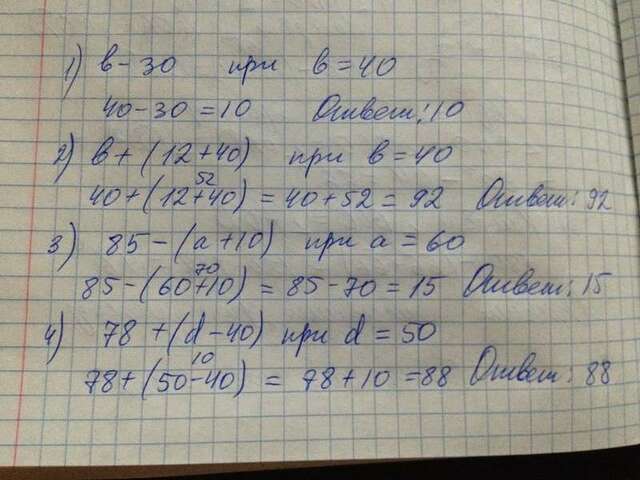 1) в - 30 при в = 40
40 - 30 = 10 Ответ: 10
2) в + (12 + 40) при в = 40
52
40 + (12 + 40) = 40 + 52 = 92 Ответ: 92
3) 85 - (а + 10) при а = 60
70
85 - (60 + 10) = 85 - 70 = 15 Ответ: 15
4) 78 + (d - 40) при d = 50
10
78 + (50 - 40) = 78 + 10 = 88 Ответ: 88